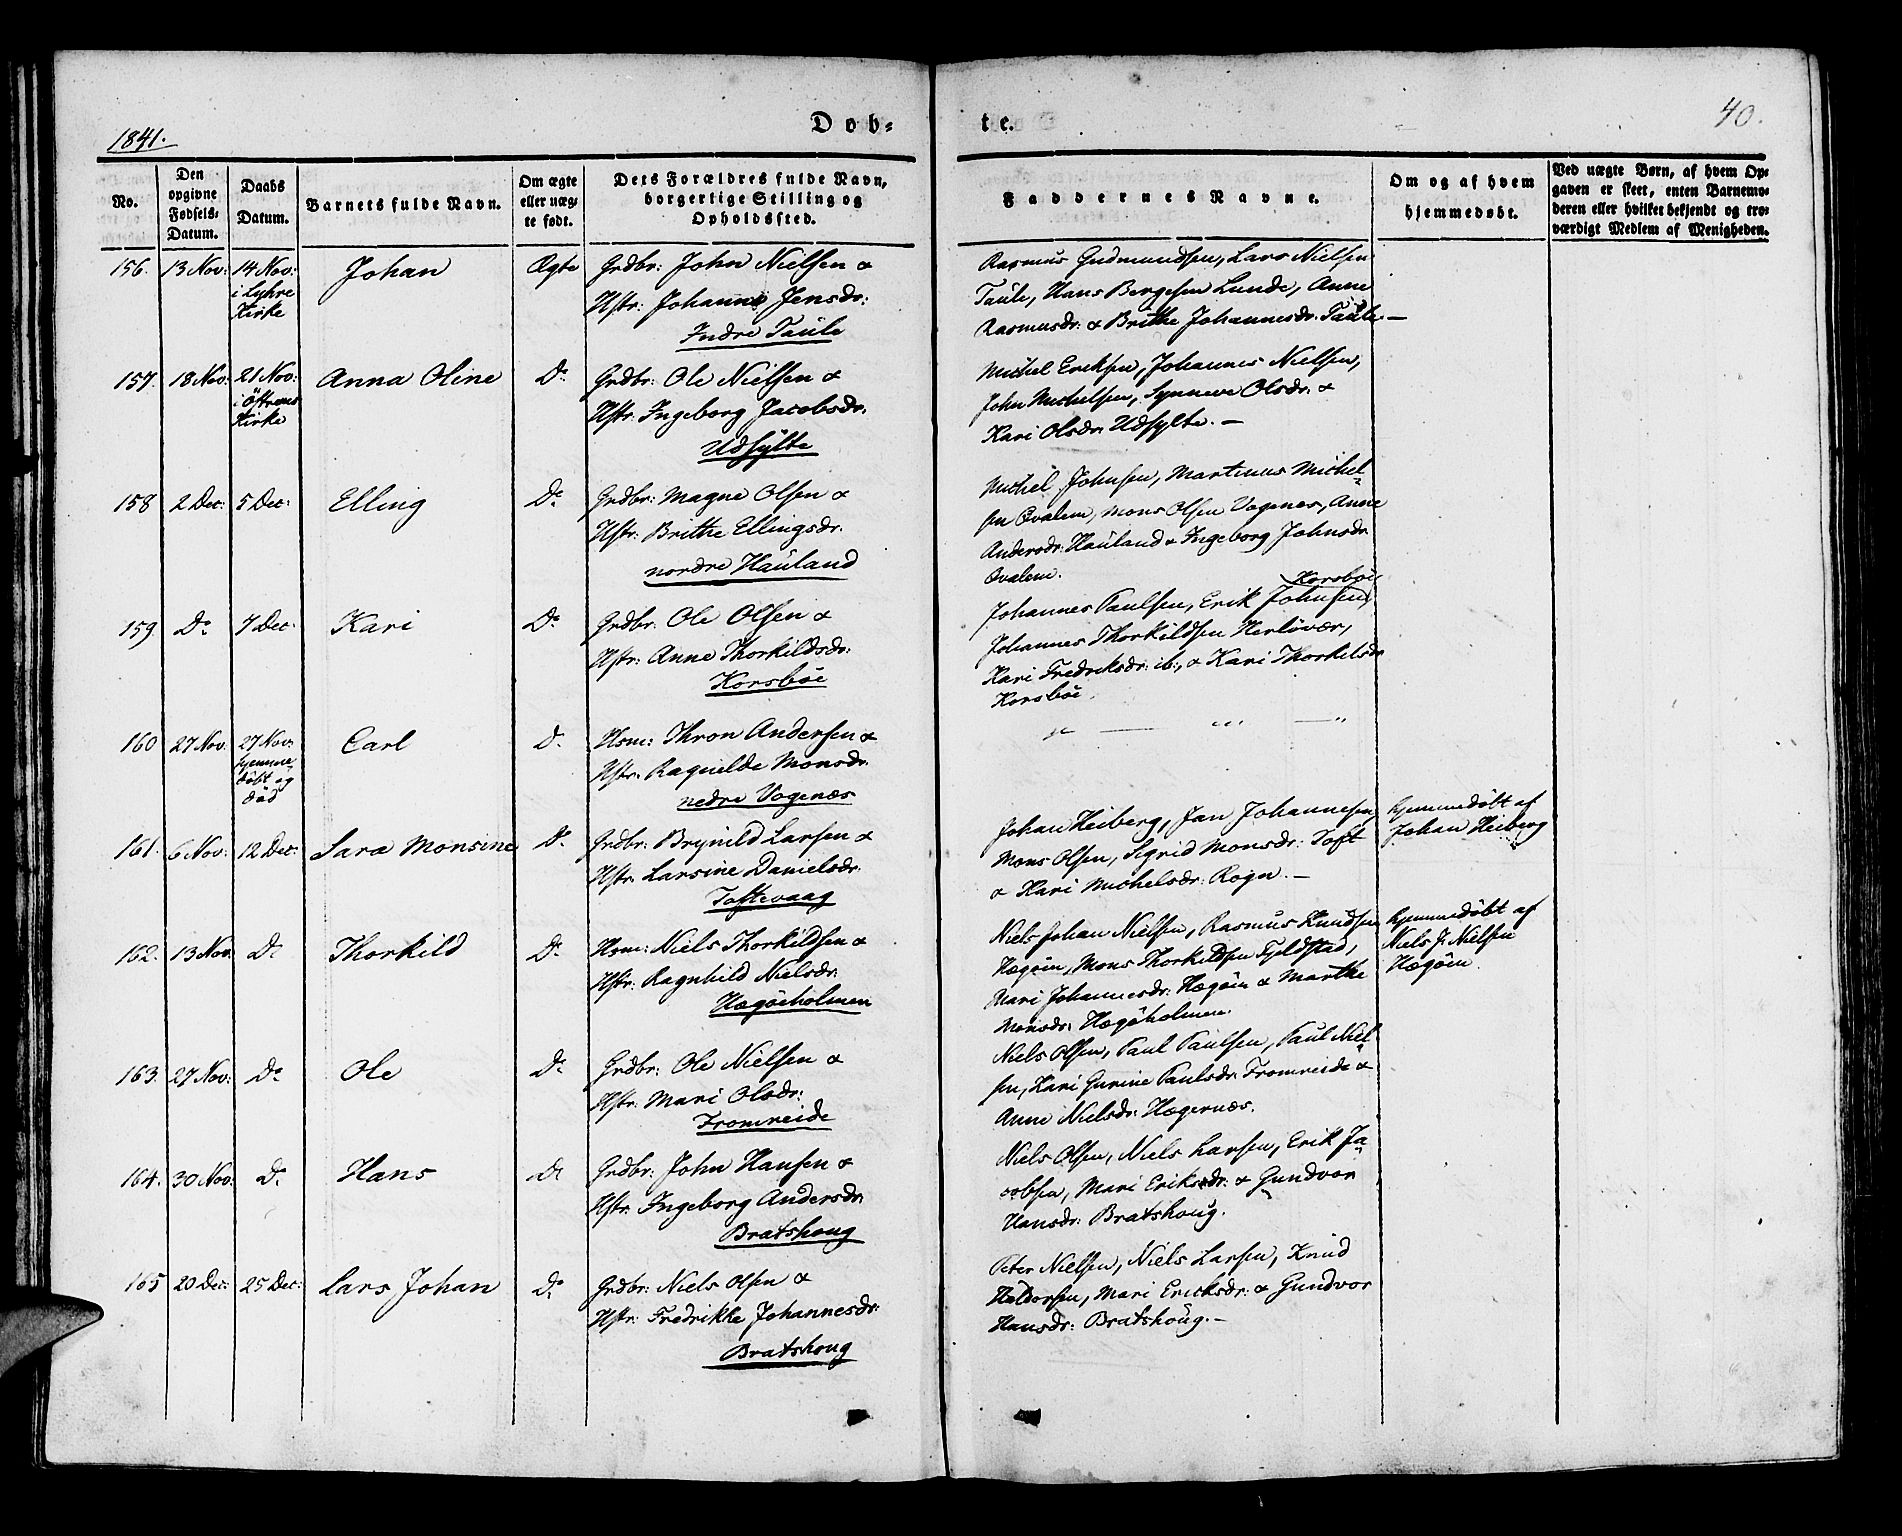 1841.
Døb-
te.
40.
No.
Den opgivne Fødsels-Datum.
Daabs Datum.
Barnets fulde Navn.
Om ægte eller uæg-te født.
Dets Forældres fulde Navn, borgerlige Stilling og Opholdssted.
Faddernes Navne.
Om og af hvem hjemmedøbt.
Ved uægte Børn, af hvem Op-gaven er skeet, enten Barnemo-deren eller hvilket bekjendt og tro-værdigt Medlem af Menigheden.
156. 13 Nov: 14 Nov: Johan Ægte Grdbr: John Nielsen &
i Lyhre
Kirke
Hstr: Johanne Jensdr:
Indre Taule
Rasmus Gudmundsen, Lars Nielsen
Taule, Hans Bergesen Lunde, Anne
Rasmusdr: & Brithe Johannesdr: Taule. —
157. 18 Nov: 21 Nov: Anna Oline Do Grdbr: Ole Nielsen &
i Östrems
Kirke
Hstr: Ingeborg Jacobsdr:
Udsylte
Michel Eriksen, Johannes Nielsen,
John Michelsen, Synneve Olsdr: &
Kari Olsdr: Udsylte. —
158 2 Dec: 5 Dec: Elling Do Grdbr: Magne Olsen &
Hstr: Brithe Ellingsdr:
nordre Hauland
Michel Johnsen, Martinus Michel-
sen Qvalem, Mons Olsen Vogenes, Anne
Andersdr: Hauland & Ingeborg Johnsdr
Qvalem.
159. Do 7 Dec: Kari Do Grdbr: Ole Olsen &
Hstr: Anne Thorkildsdr:
Korsböe
Korsböe
Johannes Paulsen, Erik Johnsen,
Johannes Thorkildsen Herlövær,
Kari Fredriksdr: ib:, & Kari Thorkelsdr
Korsböe.
160 27 Nov: 27 Nov: Carl Do Hsm: Thron Andersen &
hjemme
döbt og
död
Hstr: Ragnilde Monsdr:
nedre Vogenæs
161. 6 Nov: 12 Dec: Sara Monsine Do Grdbr: Brynild Larsen &
Hstr: Larsine Danielsdr:
Toftevaag
Johan Heiberg, Jan Johannesen,
Mons Olsen, Sigrid Monsdr: Toft
& Kari Michelsdr: Rogn. —
hjemmedöbt af
Johan Heiberg
162. 13 Nov: Do Thorkild Do Hsm: Niels Thorkildsen &
Hstr: Ragnhild Nielsdr:
Hægöeholmen
Niels Johan Nielsen, Rasmus Knudsen
Hægöen, Mons Thorkildsen Fjeldstad,
Mari Johannesdr: Hægöen & Marthe
Monsdr: Hægöholmen.
hjemmedöbt af
Niels J. Nielsen
Hægöen.
163. 27 Nov: Do Ole Do Grdbr: Ole Nielsen &
Hstr: Mari Olsdr:
Fromreide
Niels Olsen, Paul Paulsen, Paul Niel-
sen, Kari Gurine Paulsdr: Fromreide &
Anne Nielsdr: Hægernæs.
164. 30 Nov: Do Hans Do Grdbr: John Hansen &
Hstr: Ingeborg Andersdr:
Bratshoug
Niels Olsen, Niels Larsen, Erik Ja-
cobsen, Mari Eriksdr: & Gundvor
Hansdr: Bratshoug.
165 20 Dec: 25 Dec: Lars Johan Do Grdbr: Niels Olsen &
Hstr: Fredrikke Johannesdr:
Bratshoug
Peter Nielsen, Niels Larsen, Knud
Haldorsen, Mari Ericksdr: & Gundvor
Hansdr: Bratshoug. —